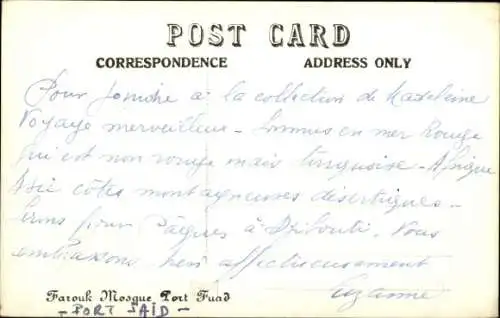 POST CARD
CORRESPONDENCE ADDRESS ONLY
Pour joindre à la collection de Madeleine
Voyage merveilleux - Sommes en mer Rouge
qui est non rouge mais turquoise - Afrique
Asie côtes montagneuses désertiques -
Serons pour Pâques à Djibouti. Vous
embrassons bien affectueusement
Suzanne
Farouk Mosque, Port Fuad
- PORT SAÏD -